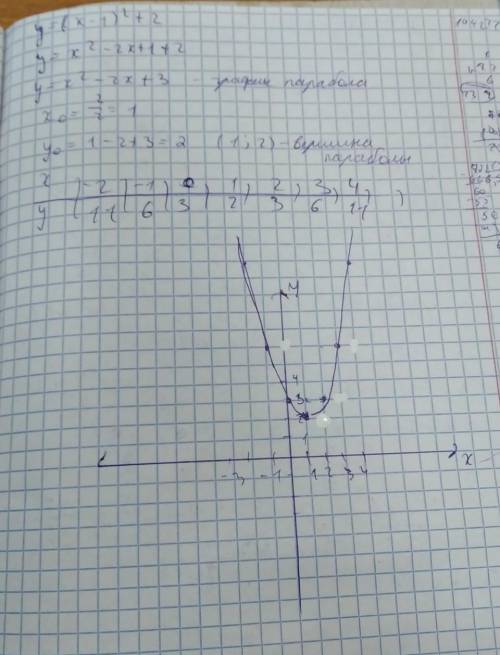 y=(x-1)²+2
y=x²-2x+1+2
y=x²-2x+3 - график парабола
x₀=2/2=1
y₀=1-2+3=2 (1;2)-вершина
параболы
x | -2 | -1 | 0 | 1 | 2 | 3 | 4
y | 11 | 6 | 3 | 2 | 3 | 6 | 11
y
4
3
2
1
-3 -1 1 2 3 4 x